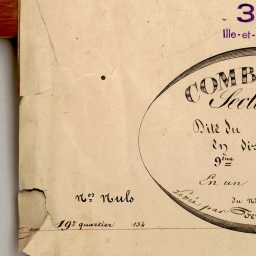 3
Ille-et-
COMB
Secti
Dite du
en dix
9ème
En un
Levée par
Nos Nuls
19e quartier 134